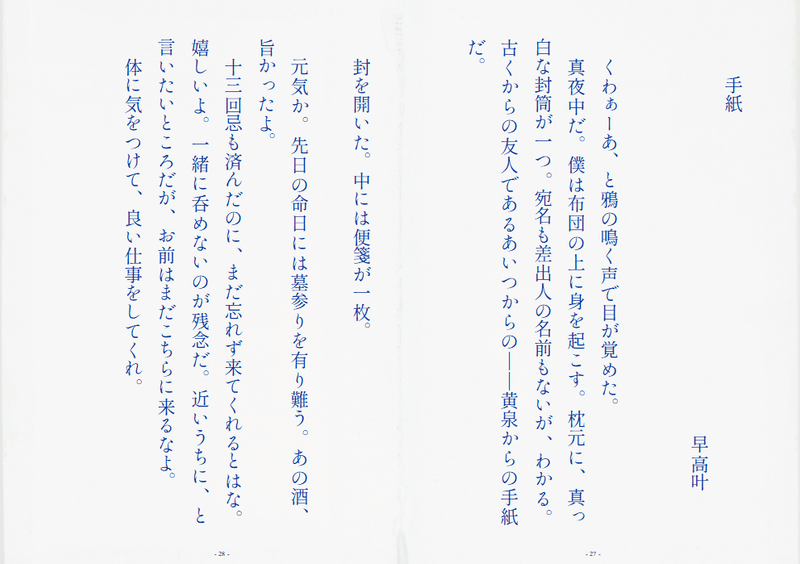 手紙
早高叶
くわぁーあ、と鴉の鳴く声で目が覚めた。
真夜中だ。僕は布団の上に身を起こす。枕元に、真っ
白な封筒が一つ。宛名も差出人の名前もないが、わかる。
古くからの友人であるあいつからの――黄泉からの手紙
だ。
- 27 -
封を開いた。中には便箋が一枚。
元気か。先日の命日には墓参りを有り難う。あの酒、
旨かったよ。
十三回忌も済んだのに、まだ忘れず来てくれるとはな。
嬉しいよ。一緒に呑めないのが残念だ。近いうちに、と
言いたいところだが、お前はまだこちらに来るなよ。
体に気をつけて、良い仕事をしてくれ。
- 28 -